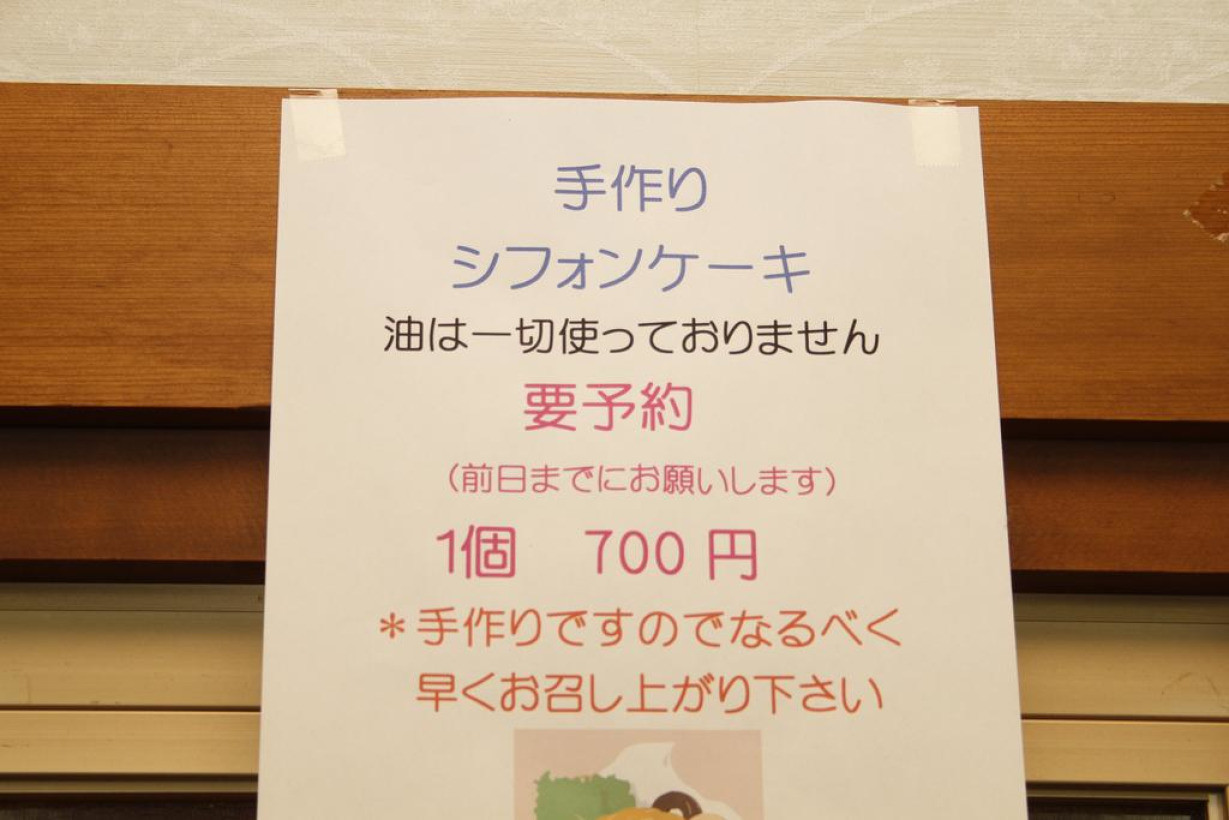 手作り
シフォンケーキ
油は一切使っておりません
要予約
（前日までにお願いします）
1個　700 円
＊手作りですのでなるべく
早くお召し上がり下さい